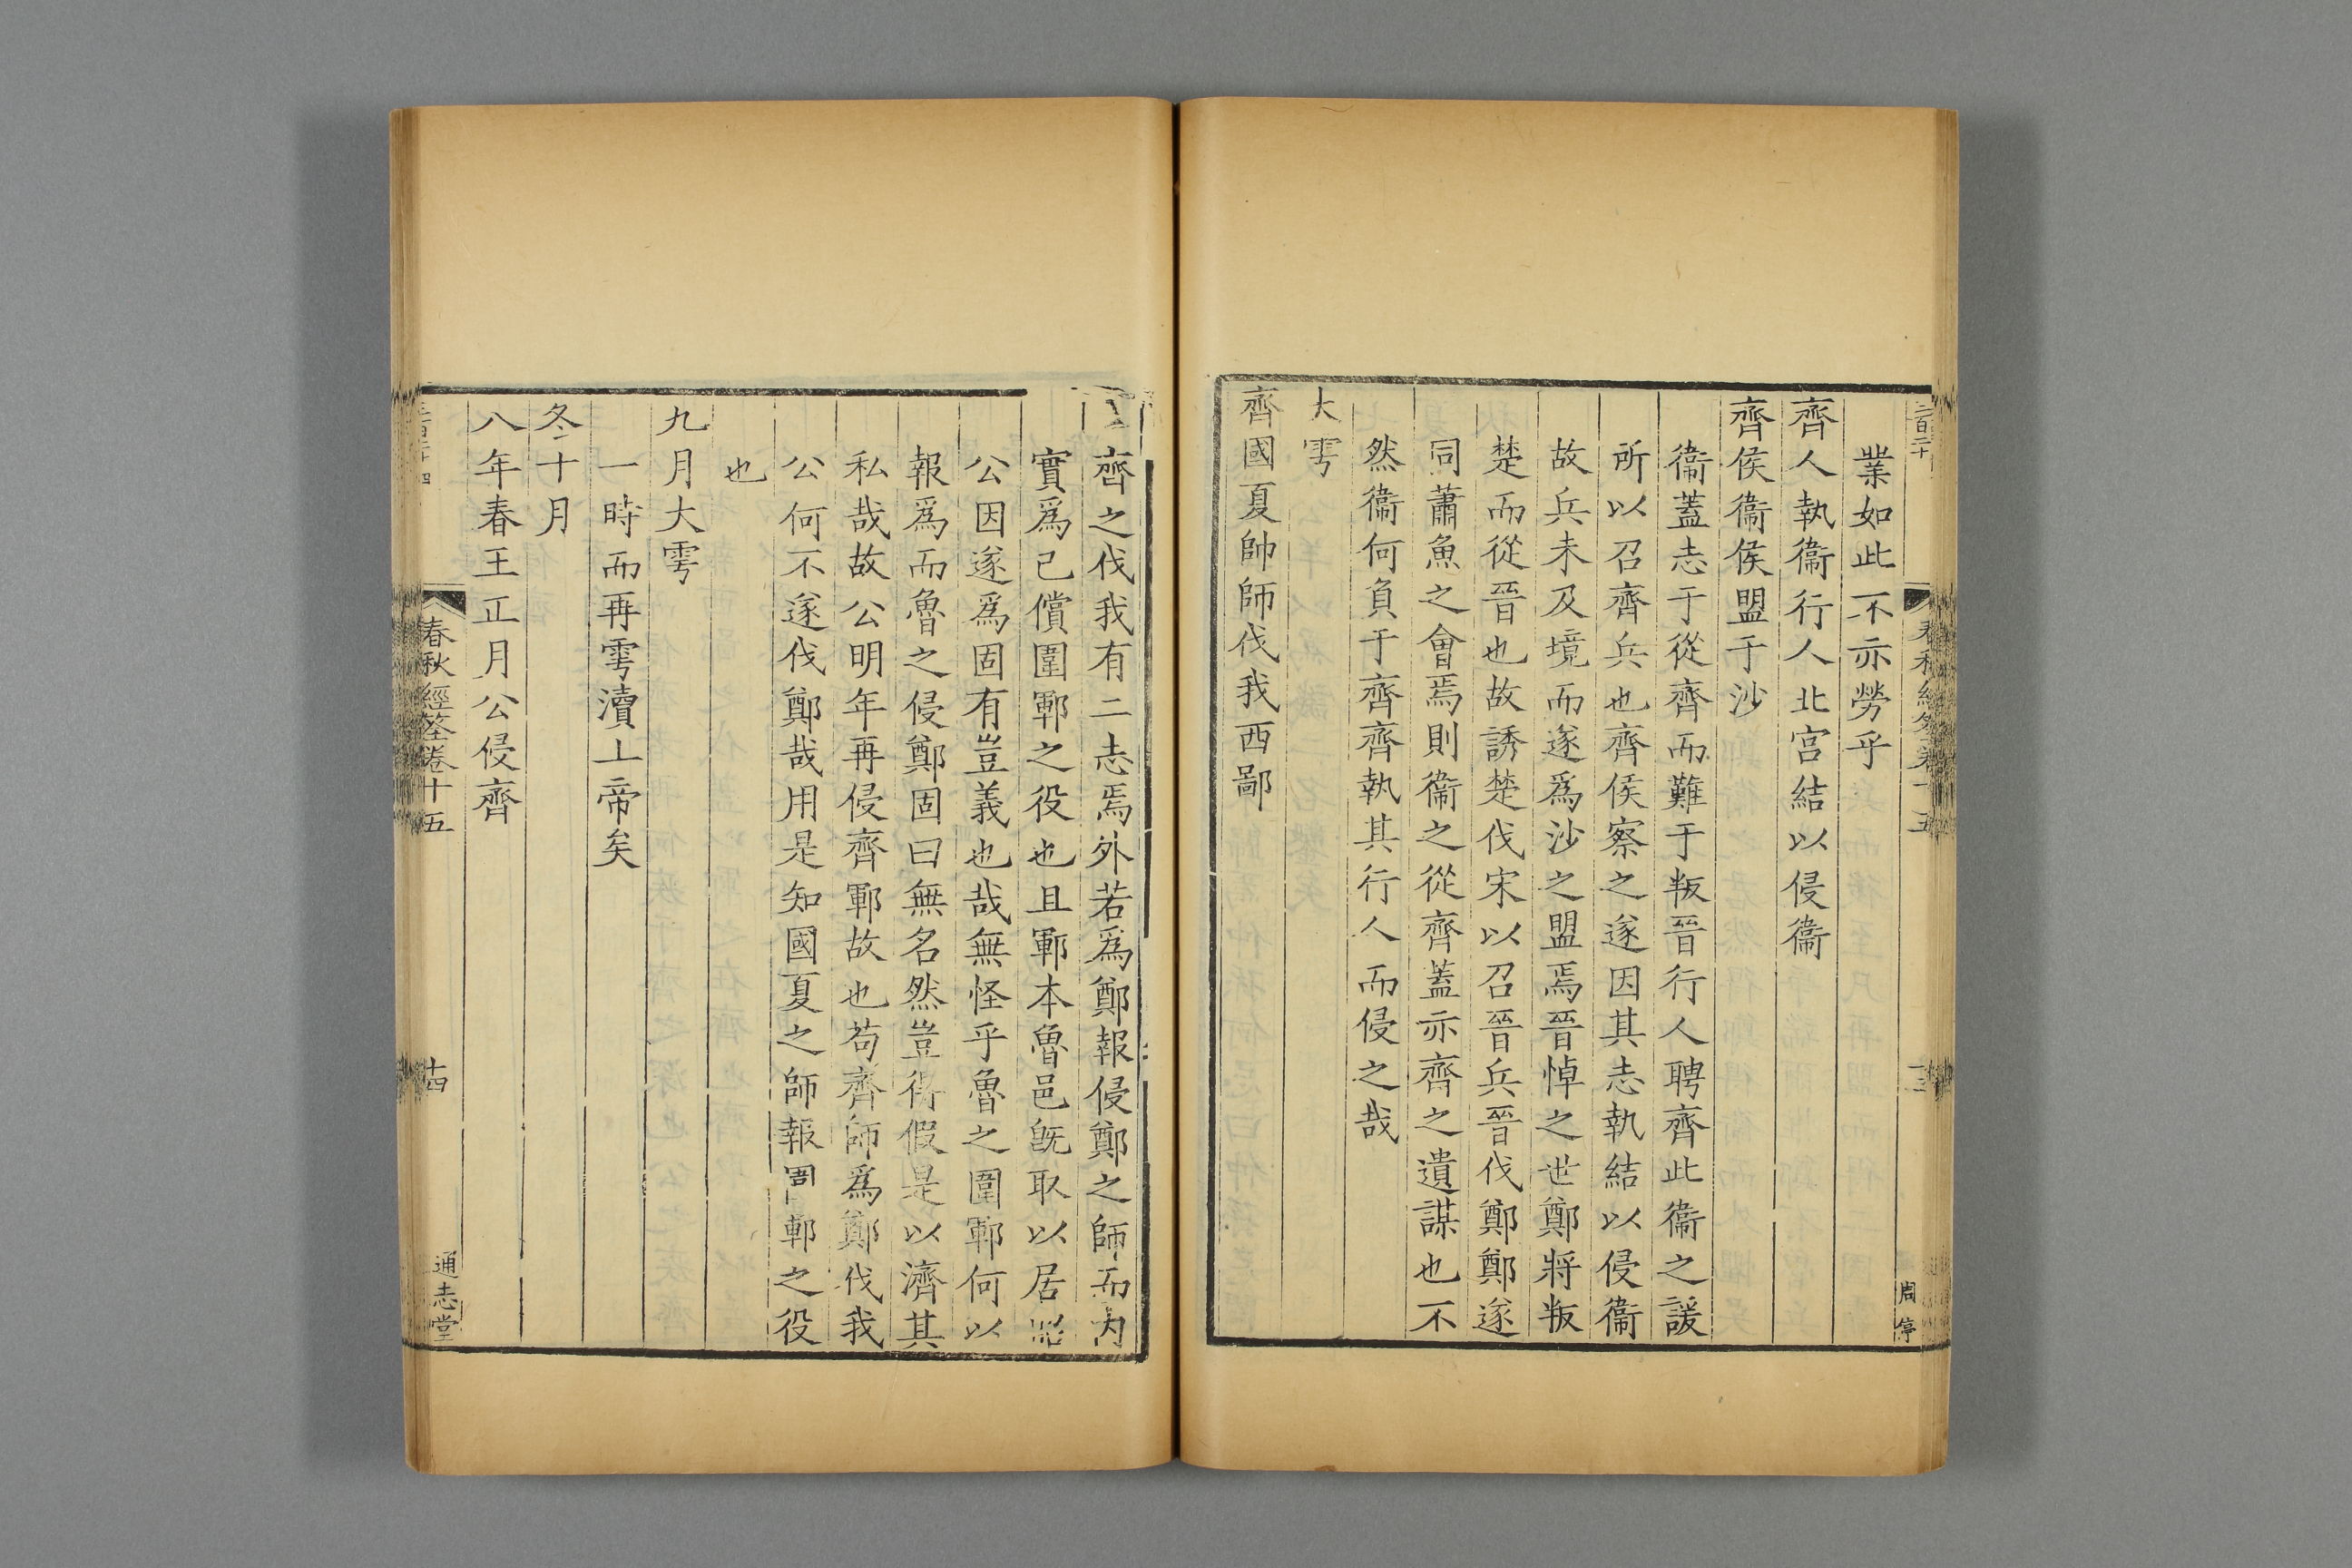 業如此不亦勞乎
齊人執衞行人北宫結以侵衞
齊侯衞侯盟于沙
衞蓋志于從齊而難于叛晉行人聘齊此衞之諼
所以召齊兵也齊侯察之遂因其志執結以侵衞
故兵未及境而遂爲沙之盟焉晉悼之世鄭將叛
楚而從晉也故誘楚伐宋以召晉兵晉伐鄭鄭遂
同蕭魚之會焉則衞之從齊蓋亦齊之遺謀也不
然衞何負于齊齊執其行人而侵之哉
大雩
齊國夏帥師伐我西鄙
周停
齊之伐我有二志焉外若爲鄭報侵鄭之師而内
實爲己償圍鄆之役也且鄆本魯邑旣取以居昭
公因遂爲固有豈義也哉無怪乎魯之圍鄆何以
報爲而魯之侵鄭固曰無名然豈得假是以濟其
私哉故公明年再侵齊鄆故也苟齊師爲鄭伐我
公何不遂伐鄭哉用是知國夏之師報圍鄆之役
也
九月大雩
一時而再雩瀆上帝矣
冬十月
八年春王正月公侵齊
春秋經筌卷十五
十四
通志堂